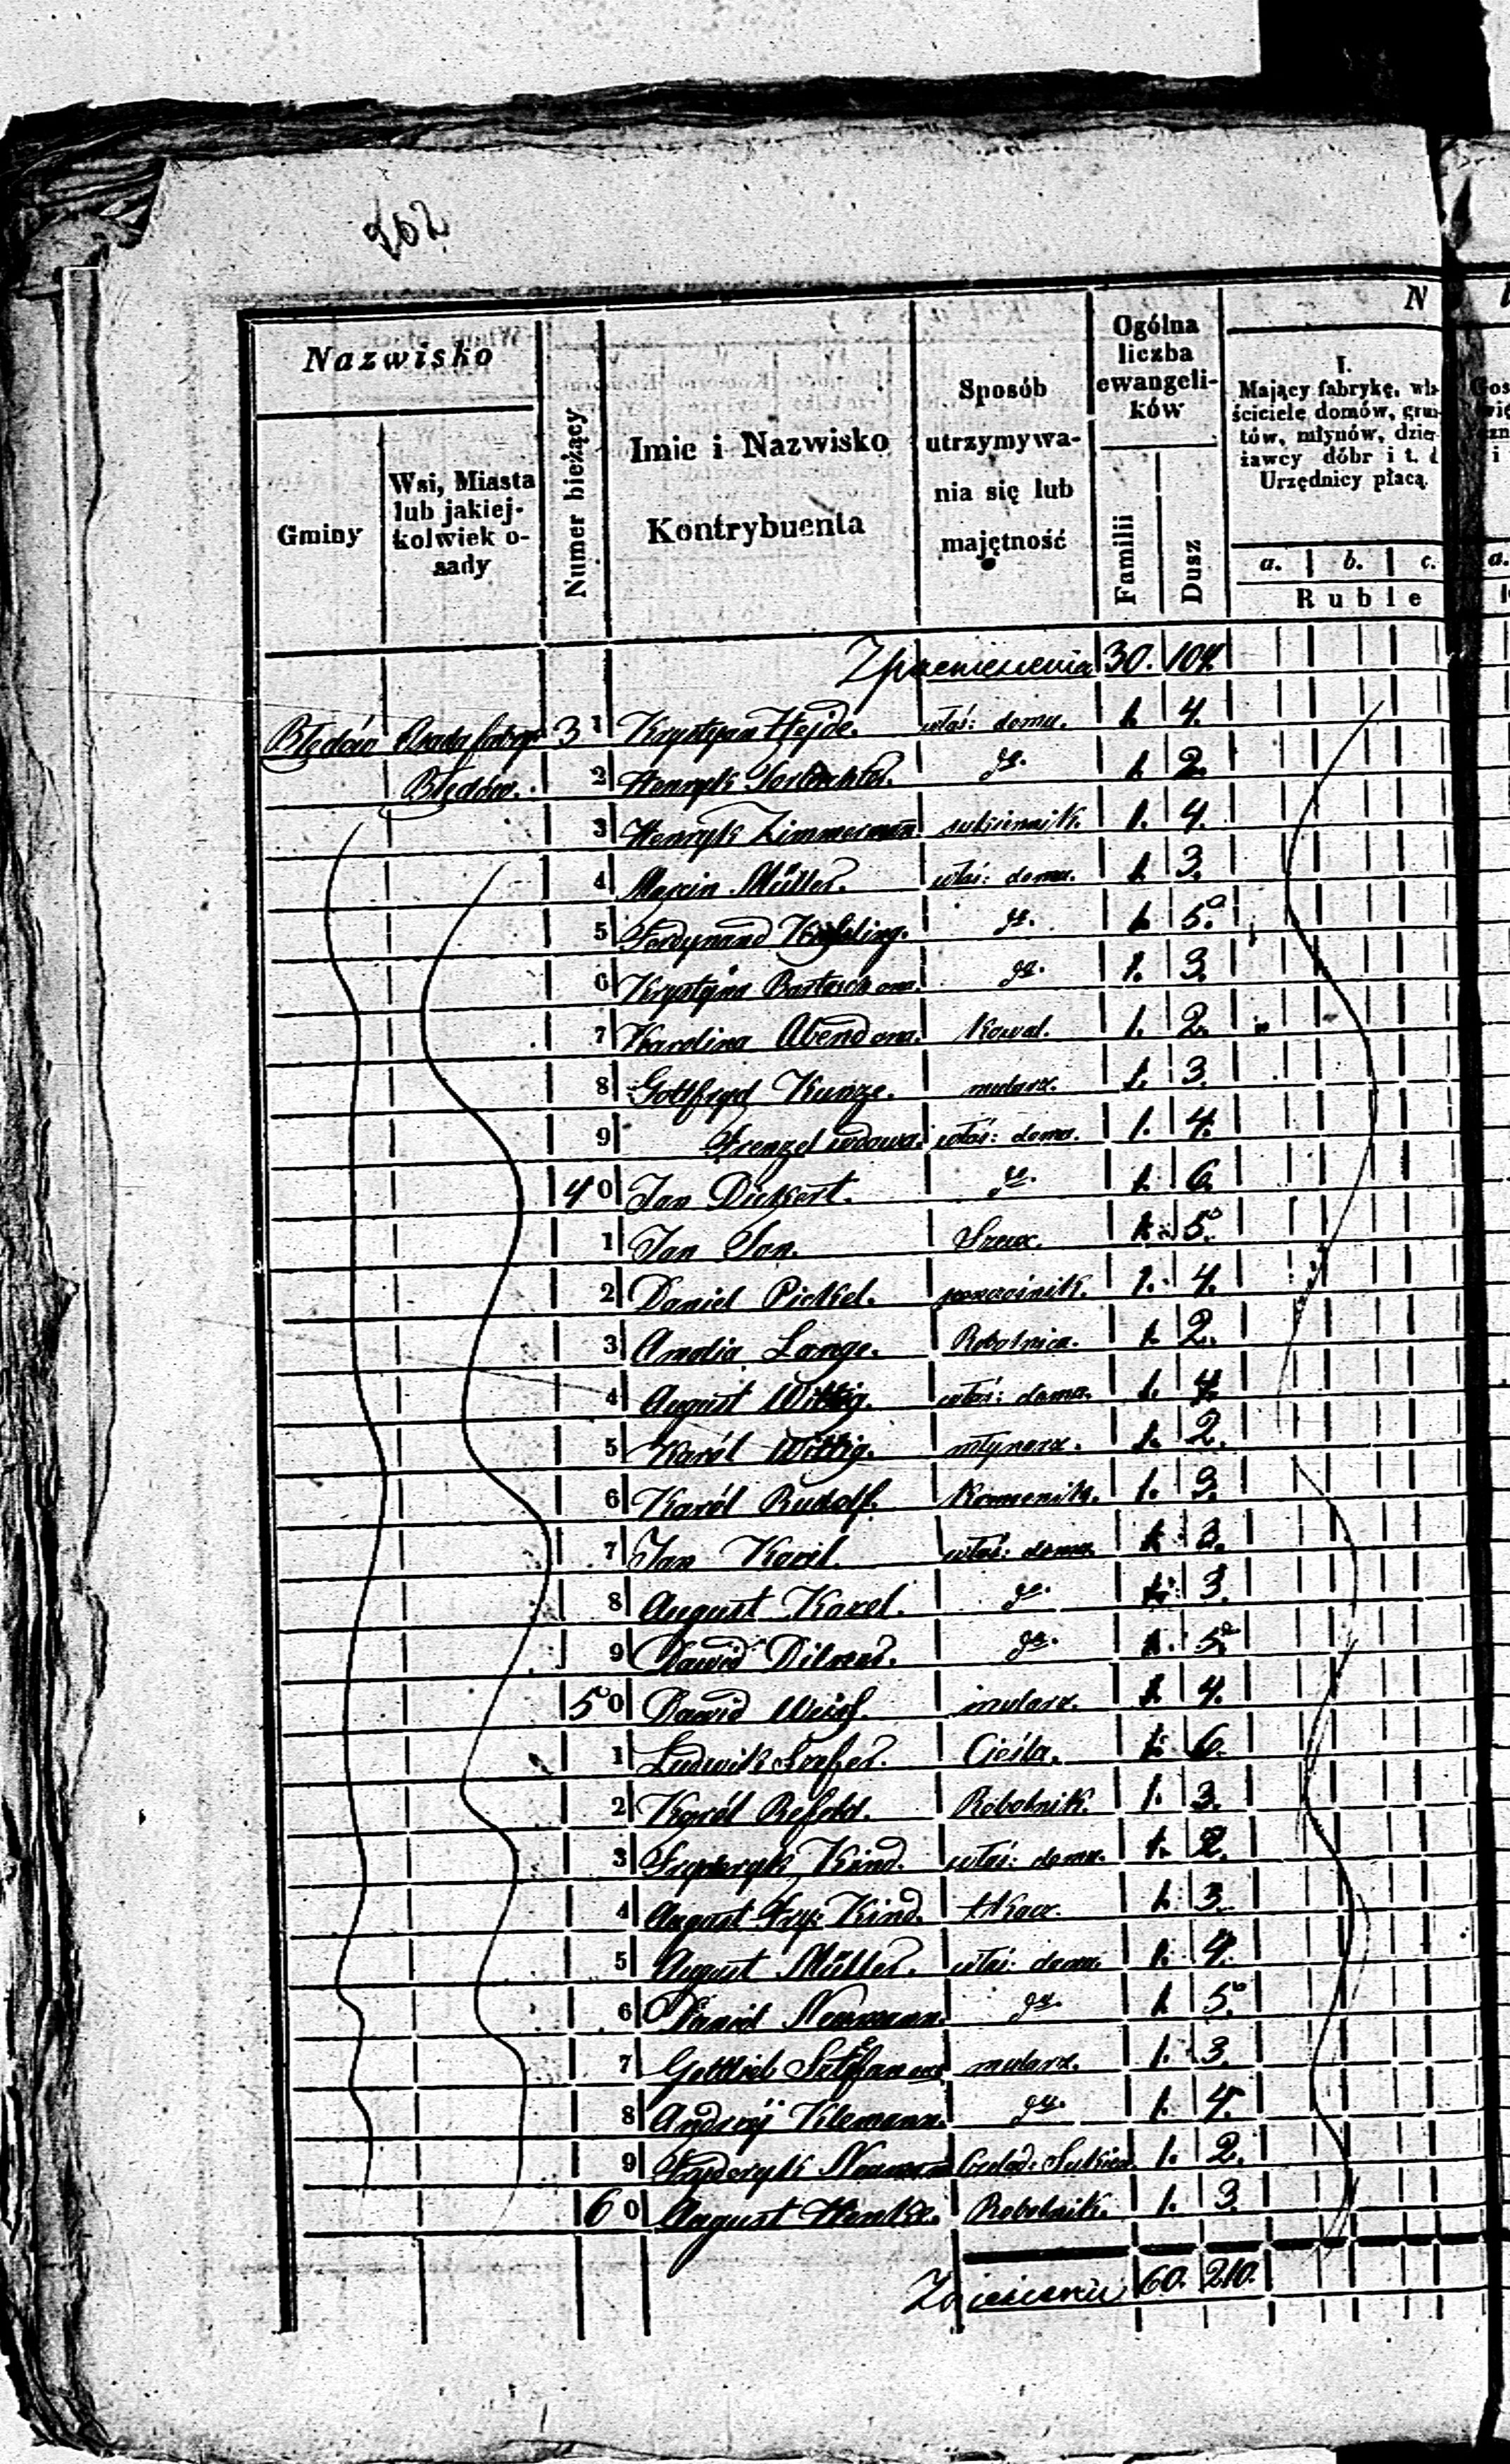 202
Nazwisko
Gminy
Wsi, Miasta lub jakiej-kolwiek o-sady
Numer bieżący
Imie i Nazwisko
Kontrybuenta
Sposób utrzymywa-nia się lub majętność
Ogólna liczba ewangeli-ków
Familii
Dusz
N
I.
Mający fabrykę, wła-
ściciele domów, grun-
tów, młynów, dzier-
żawcy dóbr i t. d
Urzędnicy płacą.
a. b. c.
Ruble
Z przeniesienia 30. 104.
Błędów Osada fabry 31 Krystyan Hejde. właś: domu. 1. 4.
Błędów. 2 Henryk go. 1. 2.
3 Henryk Zimmermann sukiennik. 1. 4.
4 Marcin Müller. właś: domu. 1. 3.
5 Ferdynand go. 1. 5.
6 Krystyna go. 1. 3.
7 Karolina Abend owa. Kowal. 1. 2.
8 Gottfryd Kunze. mularz. 1. 3.
9 Frenzel wdowa. właś: domu. 1. 4.
40 Jan Diekert. go. 1. 6.
1 Jan Szewc. 1. 5.
2 Daniel Pickel. 1. 4.
3 Amalia Lange. Robotnica. 1. 2.
4 August Wittig. właś: domu. 1. 4.
5 Karól Wittig. młynarz. 1. 2.
6 Karól Rudolf. Komornik. 1. 3.
7 Jan właś: domu. 1. 3.
8 August Karel. go. 1. 3.
9 Dawid go. 1. 5.
50 Dawid mularz. 1. 4.
1 Ludwik Cieśla. 1. 6.
2 Karól Robotnik. 1. 3.
3 Kind. właś: domu. 1. 2.
4 August Fry: Kind. tkacz. 1. 3.
5 August Müller. właś: domu. 1. 4.
6 Daniel Neumann. go. 1. 5.
7 Gottlieb mularz. 1. 3.
8 Andrzéj Klemann. go. 1. 4.
9 Fryderyk Czelad: Sukien 1. 2.
60 August Henke. Robotnik. 1. 3.
60. 210.